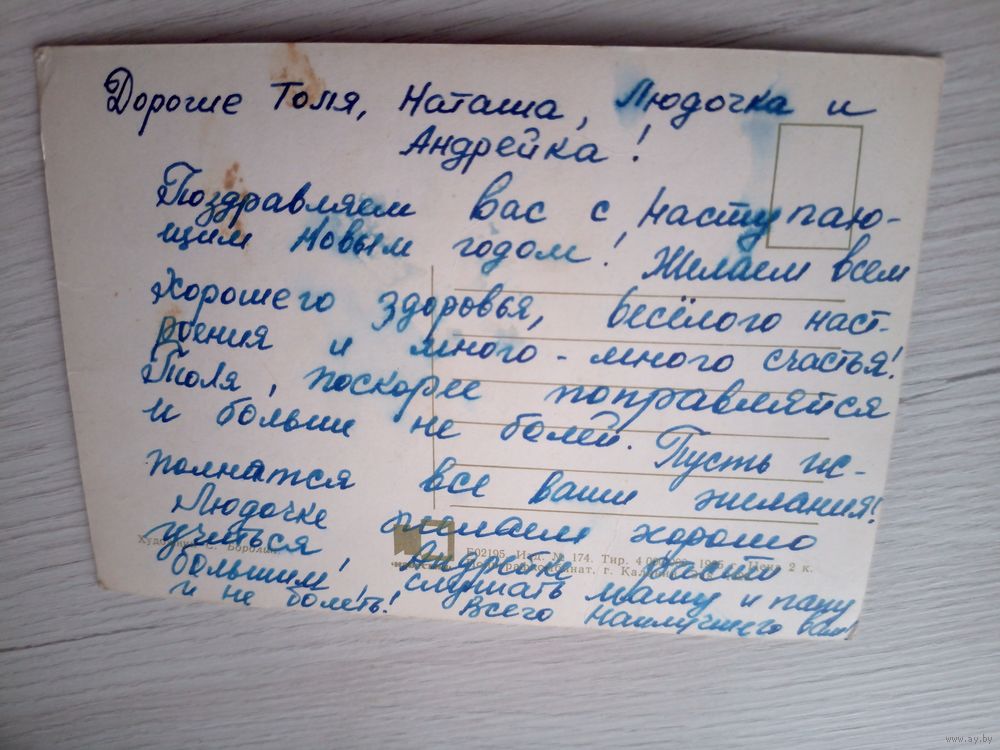 Дорогие Толя, Наташа, Людочка и
Андрейка!
Поздравляем вас с наступаю-
щим новым годом! Желаем всем
хорошего здоровья, весёлого наст-
роения и много-много счастья!
Толя, поскорее поправляйся
и больше не болей. Пусть ис-
полнятся все ваши желания!
Людочке желаем хорошо
учиться, Андрейке расти
большим, слушать маму и папу
и не болеть! Всего наилучшего вам!
Художник С.
Е02195. Изд. № 174. Тир. 4 Цена 2 к.
г.
www.ay.by